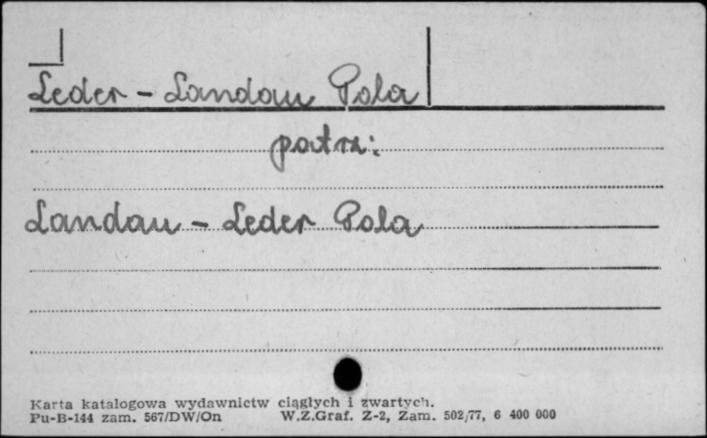 Leder - Landau Pola
patrz:
Landau - Leder Pola
Karta katalogowa wydawnictw ciągłych i zwartych.
Pu-B-144 zam. 567/DW/On W.Z.Graf. Z-2, Zam. 502/77, 6 400 000